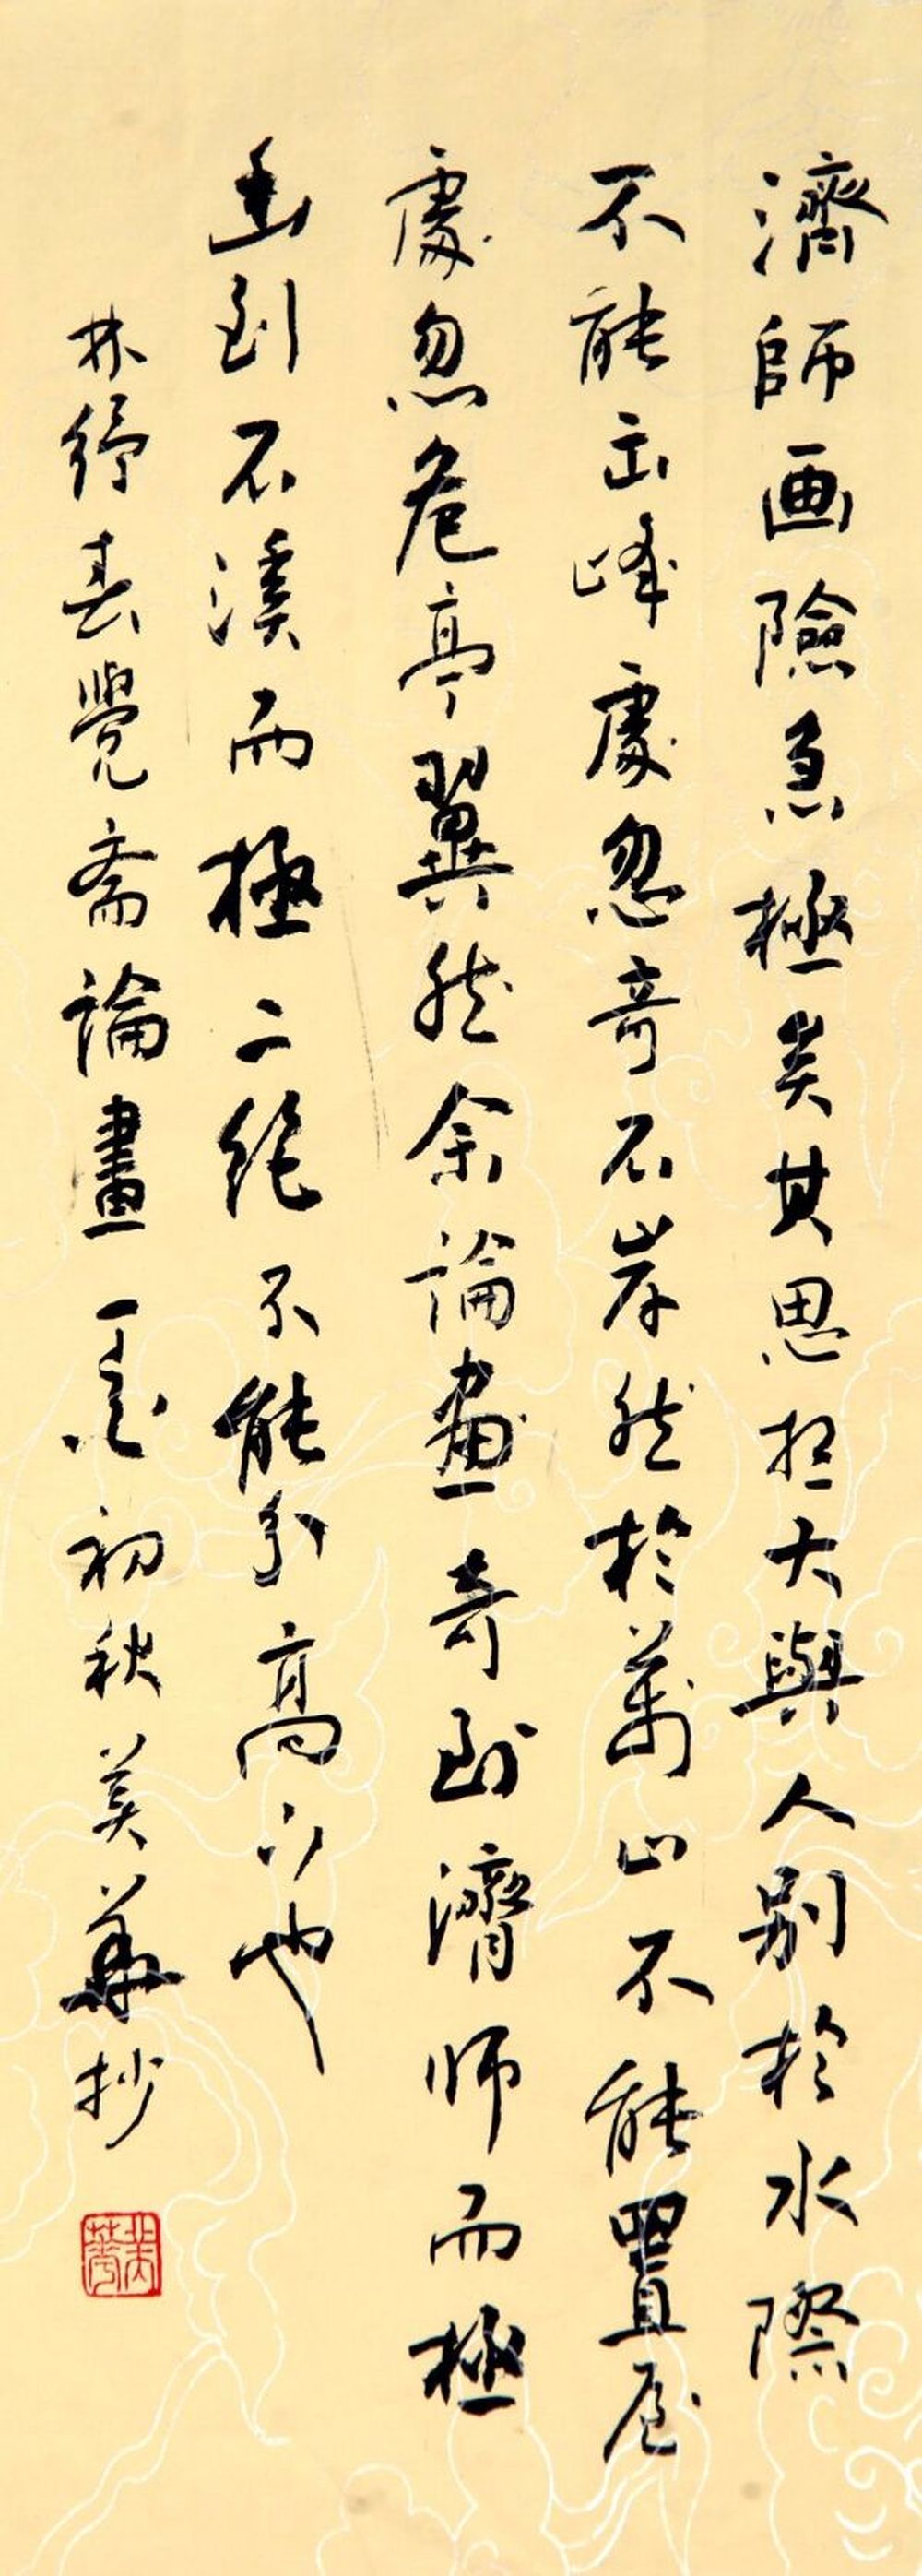 濟師画險急極矣其思想大與人別於水際
不能出峰處忽奇石岸然於萬山不能置屋
處忽危亭翼然余論畫奇到濟師而極
幽到石溪而極二絕不能分高下也
林紓春覺斋論畫一則初秋美華抄
美華